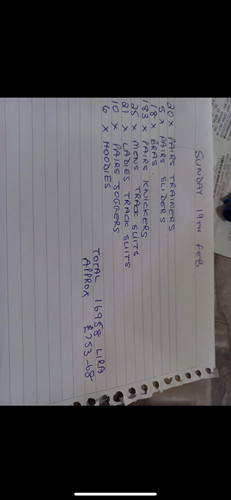 SUNDAY 19TH FEB
20 x PAIRS TRAINERS
5 x PAIRS SLIDERS
18 x BRAS
183 x PAIRS KNICKERS
25 x MENS TRACK SUITS
21 x LADIES TRACK SUITS
10 x PAIRS JOGGERS
6 x HOODIES
TOTAL 16958 LIRA
APPROX £753-68